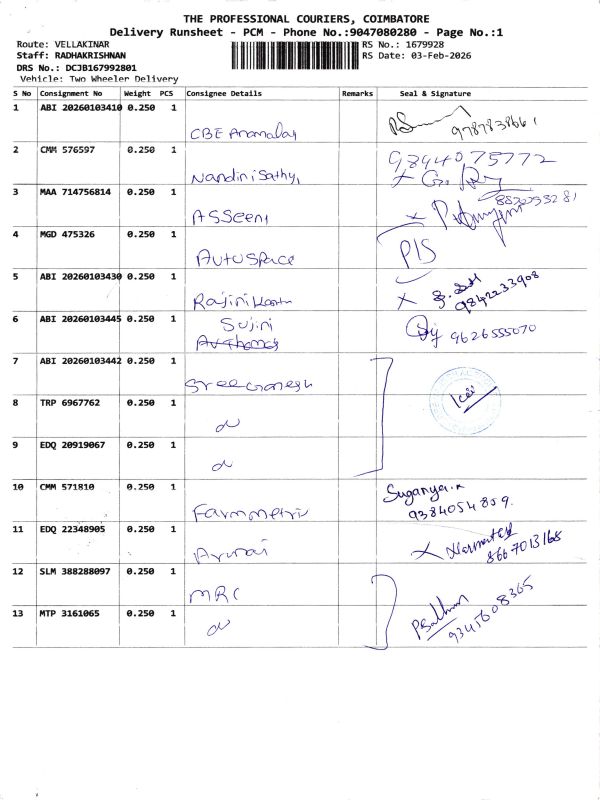 THE PROFESSIONAL COURIERS, COIMBATORE
Delivery Runsheet - PCM - Phone No.:9047080280 - Page No.:1
Route: VELLAKINAR RS No.: 1679928
Staff: RADHAKRISHNAN RS Date: 03-Feb-2026
DRS No.: DCJB167992801
Vehicle: Two Wheeler Delivery
S No Consignment No Weight PCS Consignee Details Remarks Seal & Signature
1 ABI 20260103410 0.250 1
CBE Anamalay
2 CMM 576597 0.250 1 9894075772
Nandini Sathy,
3 MAA 714756814 0.250 1
ASSeeni
4 MGD 475326 0.250 1
Autospace PIS
5 ABI 20260103430 0.250 1
Rajinikanth 9842233908
6 ABI 20260103445 0.250 1 Sujini 9626555070
7 ABI 20260103442 0.250 1
Sree Ganesh
8 TRP 6967762 0.250 1
9 EDQ 20919067 0.250 1
10 CMM 571810 0.250 1 Suganya.k
Farmmetri 9384054859.
11 EDQ 22348905 0.250 1
8667013168
12 SLM 388288097 0.250 1
MRC
13 MTP 3161065 0.250 1 9345608365